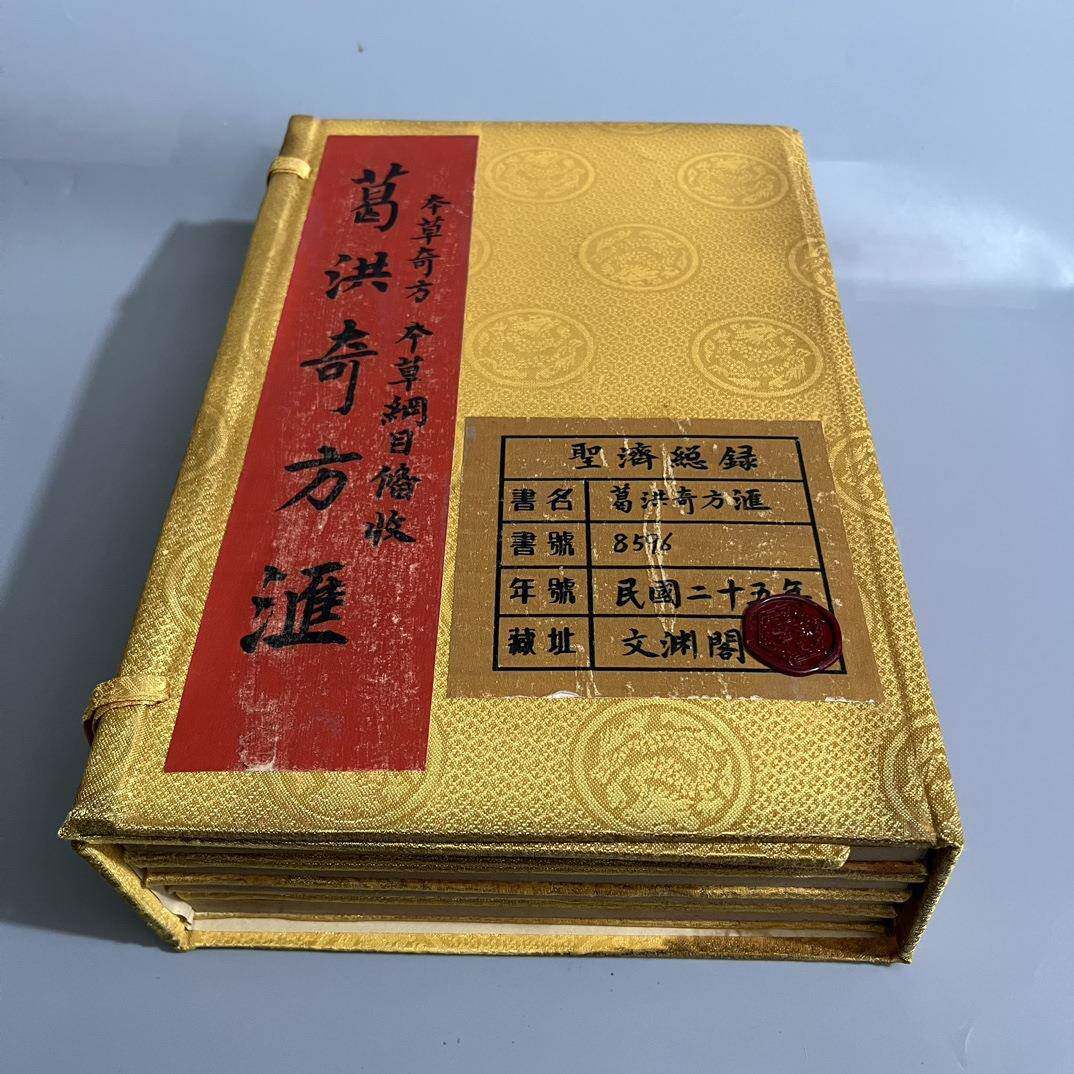 葛洪奇方滙
本草奇方 本草綱目俻收
聖濟總录
書名 葛洪奇方滙
書號 8596
年號 民國二十五年
藏址 文渊閣